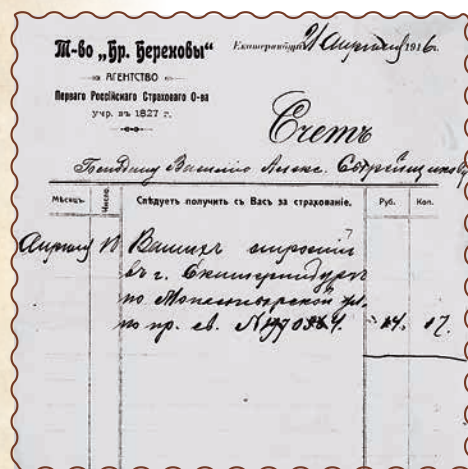 Т-во „Бр. Береховы“
АГЕНТСТВО
Перваго Россійскаго Страховаго О-ва
учр. въ 1827 г.
Екатеринбургъ 21 Апрѣля 1916г.
Счетъ
Господину Василію Алекс.
Мѣсяцъ. Число. Слѣдуетъ получить съ Васъ за страхованіе. Руб. Коп.
Апрѣля Вашихъ строеній
въ г. Екатеринбургѣ
по Монастырской ул.
по пр. св. 17.